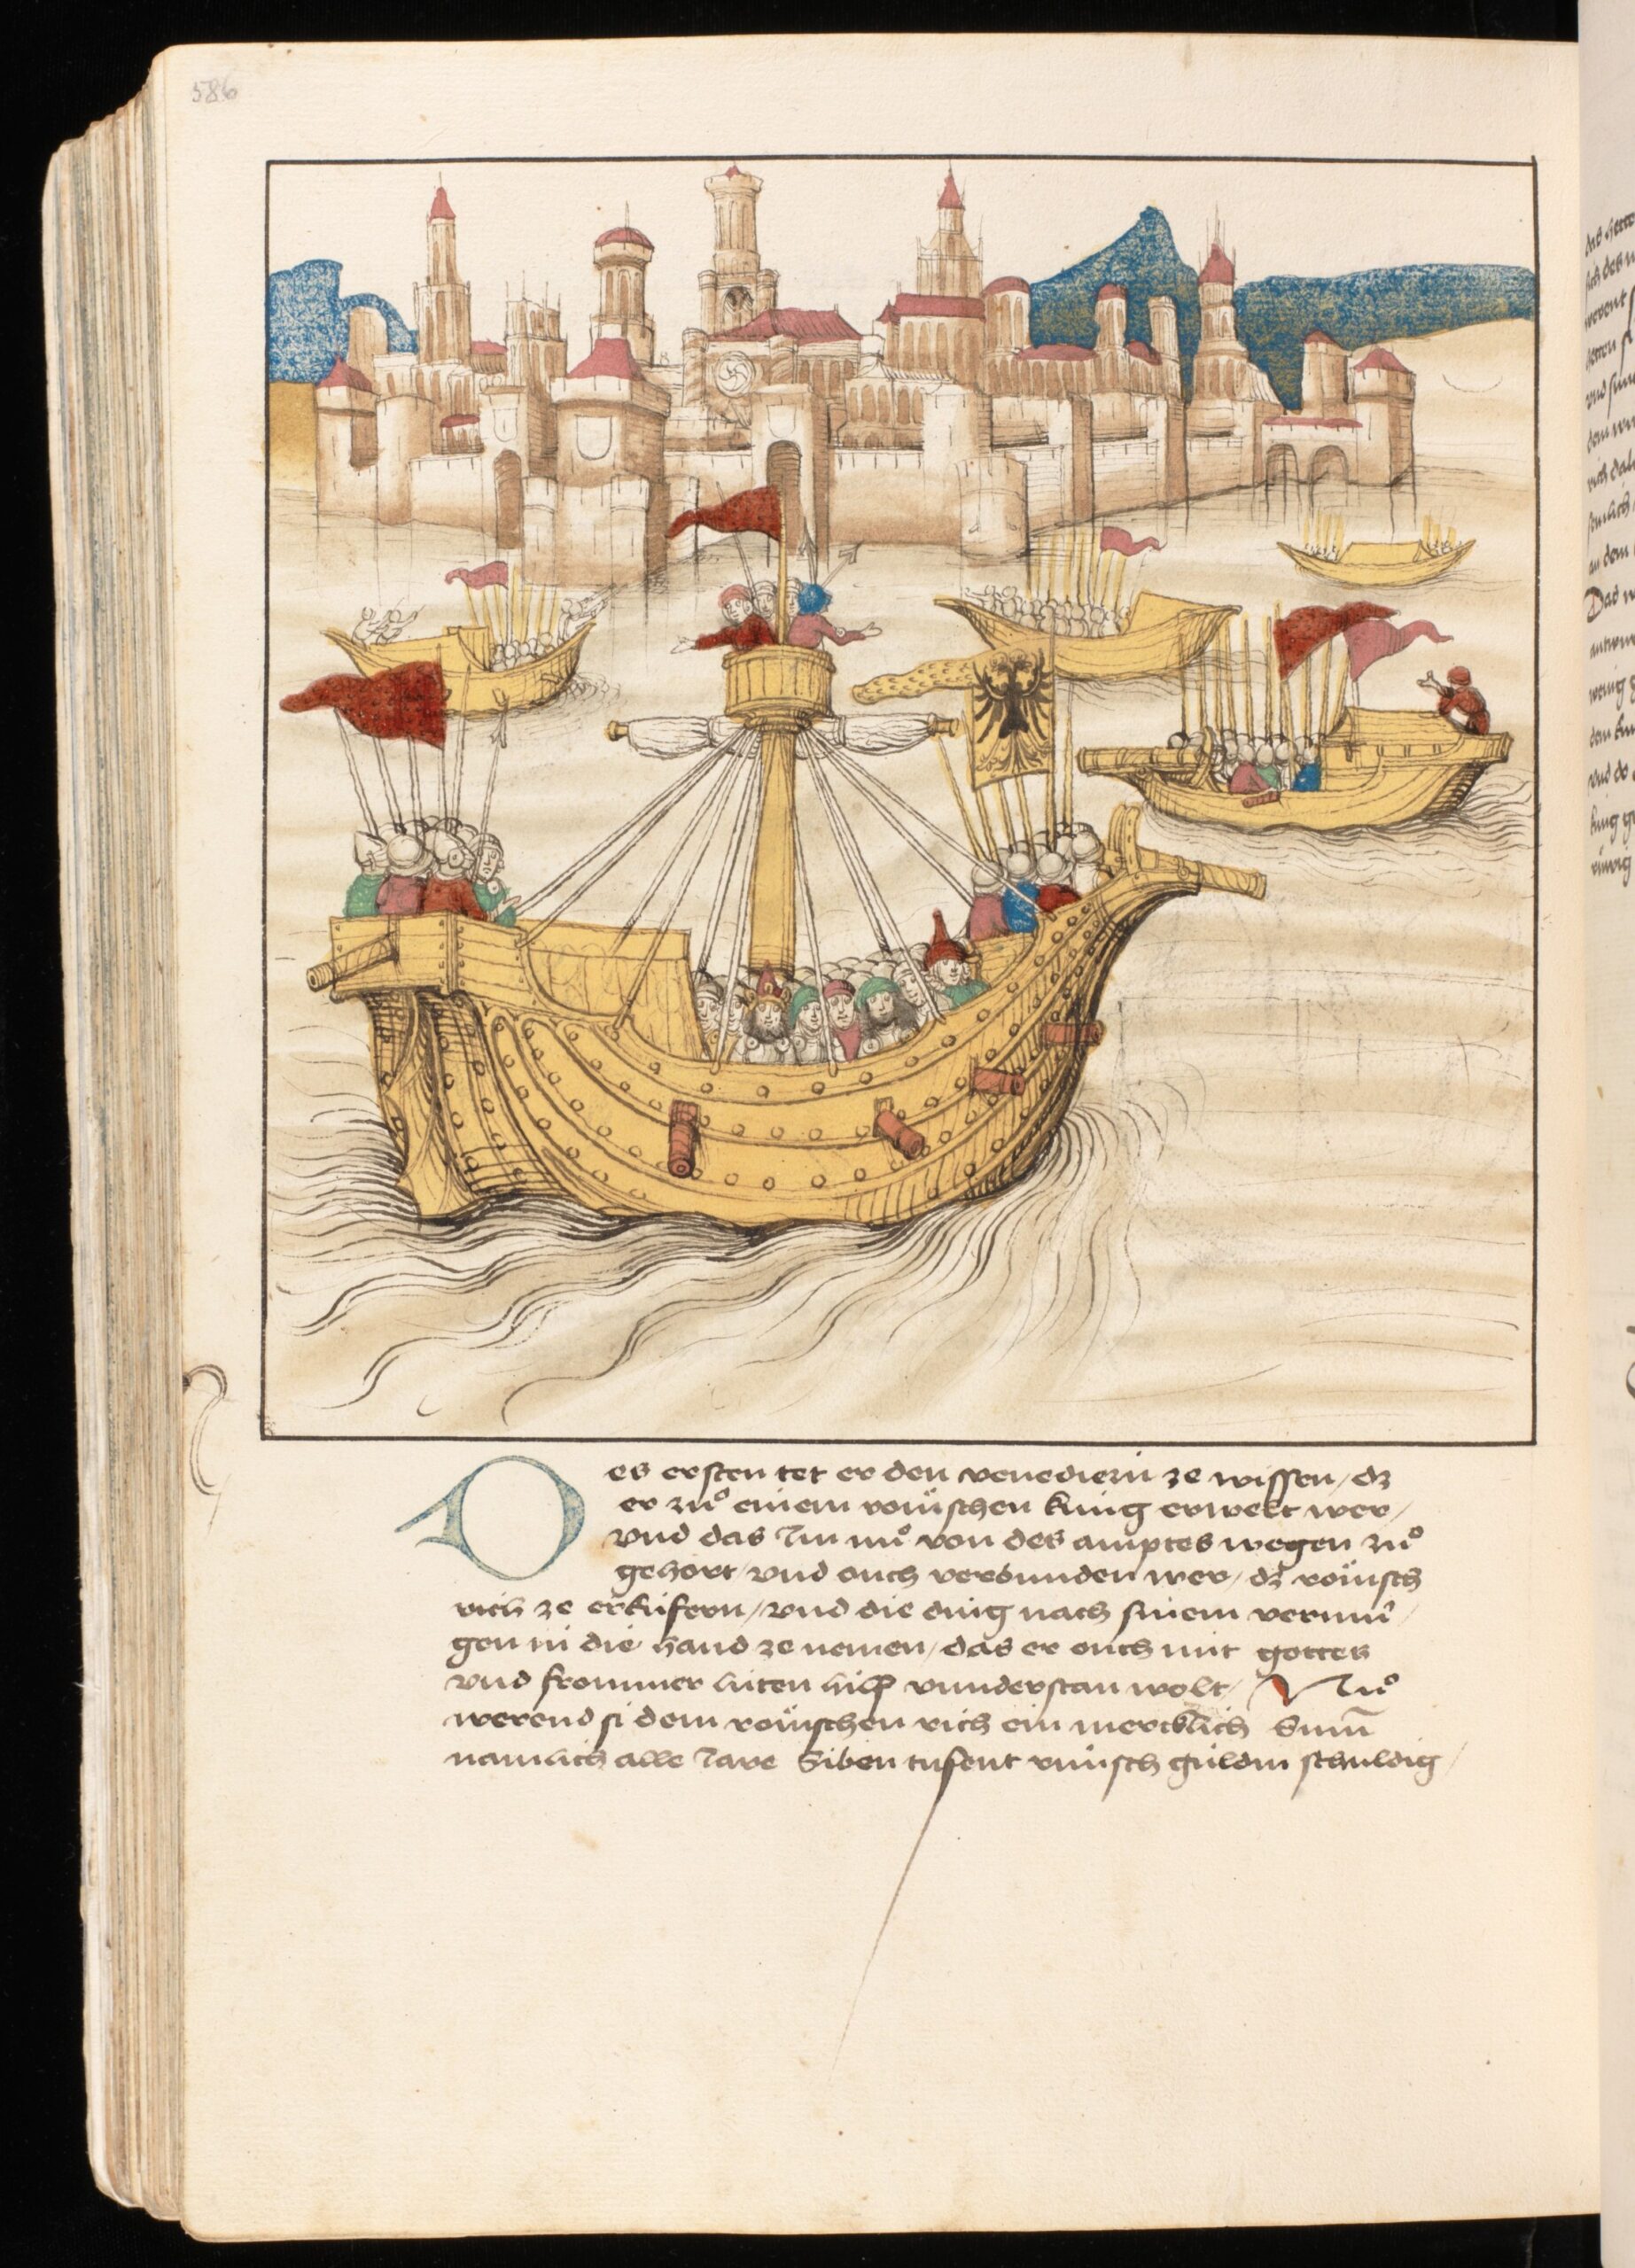 586
Des ersten tet er den venediern ze wissen / dz
er zuͦ einem römschen kung erwelt wer /
vnd das Im nuͦ von des amptes wegen zuͦ
gehort / vnd ouch verbunden wer / dz römsch
rich ze erkúfern / vnd die ding nach sinem vermú
gen in die hand ze nemen / das er ouch mit gottes
vnd frommer lúten hilff vnnderstan wolt / Nuͦ
werend si dem römschen rich ein mercklich Sum̄
namlich alle Jare Siben tusent rinisch guldin schuldig /